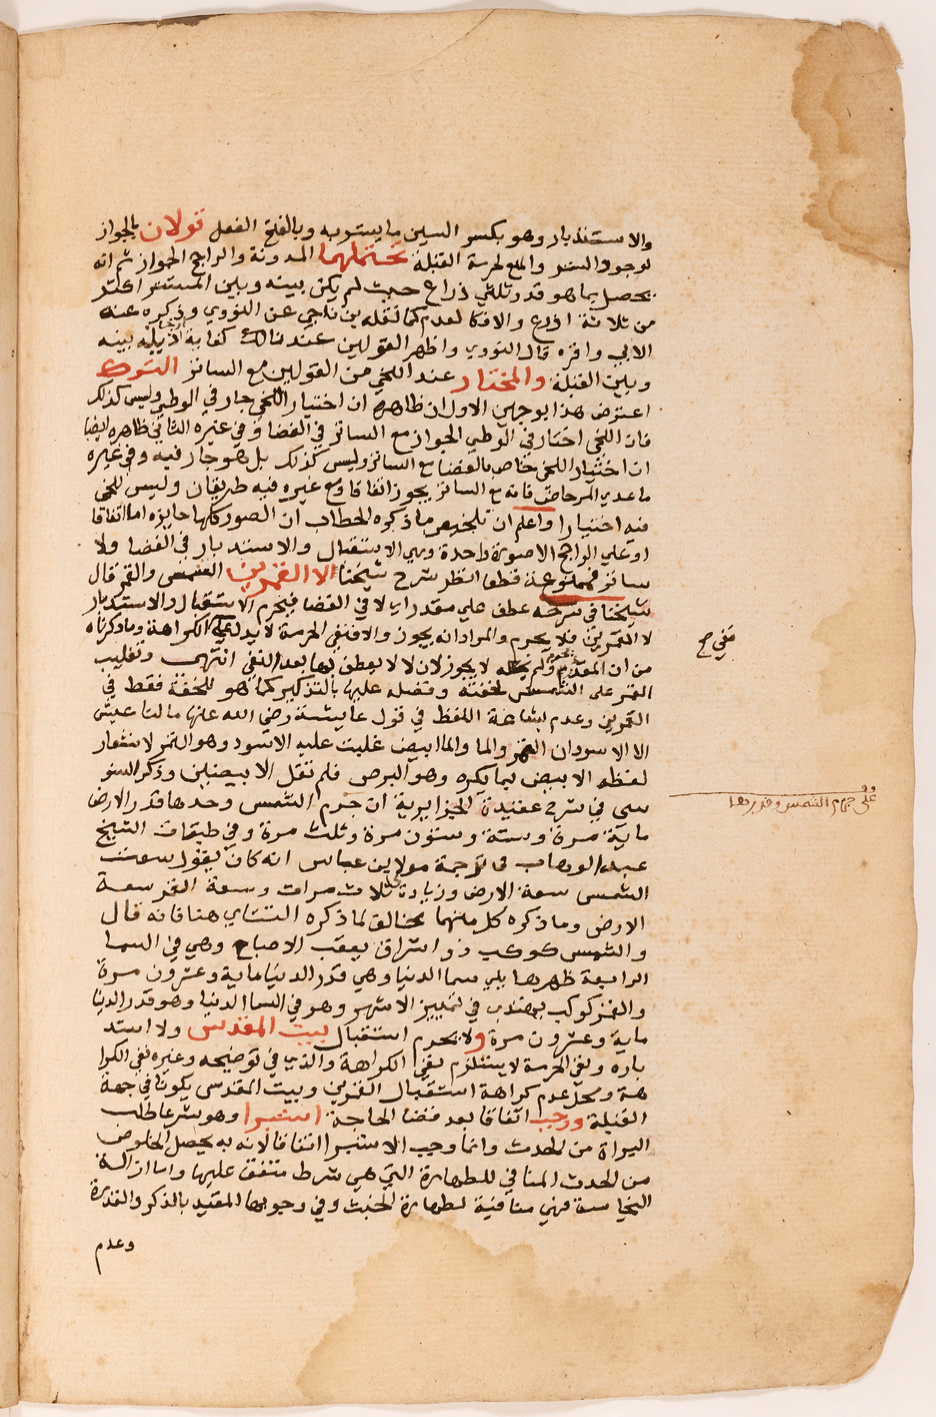 والاستدبار وهو بكسر السين ما يستر به وبالفتح الفعل قولان بالجواز
لوجود الستر والمنع لحرمة القبلة تحتملهما المدونة والراجح الجواز ثم انه
يحصل بما هو قدر ثلثي ذراع حيث لم يكن بينه وبين المستتر اكثر
من ثلاثة اذرع والا فكالعدم كما نقله بن ناجي عن النووي وذكره عنه
الابي واقره قال النووي واظهر القولين عندنا كفاية اذياله بينه
وبين القبلة والمختار عند اللخمي من القولين مع الساتر الترك
اعترض هذا بوجهين الاول ان ظاهره ان اختيار اللخمي جار في الوطي وليس كذلك
فان اللخمي اختار في الوطي الجواز مع الساتر في الفضا وفي غيره الثاني ظاهره ايضا
ان اختيار اللخمي خاص بالفضا مع الساتر وليس كذلك بل هو جار فيه وفي غيره
ما عدي المرحاض فانه مع الساتر يجوز اتفاقا ومع غيره فيه طريقان وليس للخمي
فيه اختيار واعلم ان تلخيص ما ذكره الحطاب ان الصور كلها جايزة اما اتفاقا
او علي الراجح الا صورة واحدة وهي الاستقبال والاستدبار في الفضا ولا
ساتر فممنوعة قطعا انظر شرح شيخنا الا القمرين الشمس والقمر قال
شيخنا في شرحه عطف علي مقدر اي لا في الفضا فيحرم الاستقبال والاستدبار
لا القمرين فلا يحرم والمراد انه يجوز والا فنفي الحرمة لا يدل علي الكراهة وما ذكرناه
من ان المقدر لا يجوز لان لا لا يعطف بها بعد النفي انتهي وتغليب
القمر على الشمس لخفته وفضله عليها بالتذكير كما هو للخفة فقط في
العمرين وعدم بشاعة اللفظ في قول عايشة رضي الله عنها ما لنا عيش
الا الاسودان التمر والما والما ابيض غلبت عليه الاسود وهو التمر لاشعار
لفظه الابيض بما يكره وهو البرص فلم تقل الابيضين وذكر السنو
سي في شرح عقيدة الجزايرية ان جرم الشمس وحدها قدر الارض
ماية مرة وستة وستون مرة وثلث مرة وفي طبقات الشيخ
عبد الوهاب في ترجمة مولا بن عباس انه كان يقول سعت
الشمس سعة الارض وزيادة ثلاث مرات وسعة القمر سعة
الارض وما ذكره كل منهما مخالف لما ذكره التتاي هنا فانه قال
والشمس كوكب ذو اشراق يعقب الاصباح وهي في السما
الرابعة ظهرها يلي سما الدنيا وهي قدر الدنيا ماية وعشرون مرة
والقمر كوكب يهتدي في تمييز الاشهر وهو في السما الدنيا وهو قدر الدنيا
ماية وعشرون مرة ولا يحرم استقبال بيت المقدس ولا استد
باره ونفي الحرمة لا يستلزم نفي الكراهة والذي في توضيحه وغيره نفي الكرا
هة ومحل عدم كراهة استقبال القمرين وبيت المقدس يكونا في جهة
القبلة ووجب اتفاقا بعد قضا الحاجة استبرا وهو شرعا طلب
البراة من الحدث وانما وجب الاستبرا اتفاقا لانه به يحصل الخلوص
من الحدث المنافي للطهارة التي هي شرط متفق عليها واما ازالة
النجاسة فهي منافية لطهارة الخبث وفي وجوبها المقيد بالذكر والقدرة
وعدم
نفي صح
علي جرم الشمس وقدرها